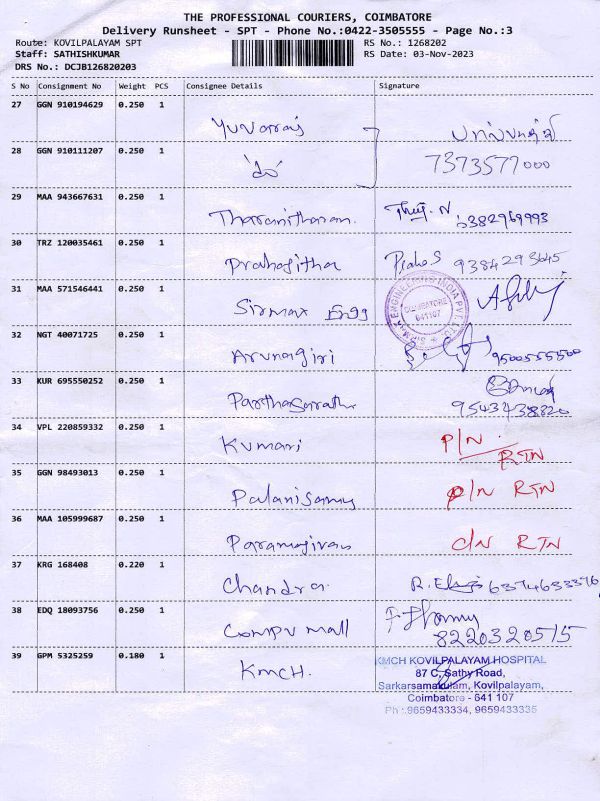 THE PROFESSIONAL COURIERS, COIMBATORE
Delivery Runsheet - SPT - Phone No.:0422-3505555 - Page No.:3
Route: KOVILPALAYAM SPT RS No.: 1268202
Staff: SATHISHKUMAR RS Date: 03-Nov-2023
DRS No.: DCJB126820203
S No Consignment No Weight PCS Consignee Details Signature
27 GGN 910194629 0.250 1
Yuvaraj
28 GGN 910111207 0.250 1
7373577000
29 MAA 943667631 0.250 1
Tharanitharan. 6382969993
30 TRZ 120035461 0.250 1
Prahajitha 9384293645
31 MAA 571546441 0.250 1
Sirmax Engg
SIRMAX ENGINEERING INDIA PVT. LTD. COIMBATORE 641107
32 NGT 40071725 0.250 1
Arunagiri 9500555500
33 KUR 695550252 0.250 1
Parthasarathi 9543438820
34 VPL 220859332 0.250 1
Kumari P/N RTN
35 GGN 98493013 0.250 1
Palanisamy P/N RTN
36 MAA 105999687 0.250 1
C/N RTN
37 KRG 168408 0.220 1
Chandra 6374633376
38 EDQ 18093756 0.250 1
Compu mall 8220320515
39 GPM 5325259 0.180 1
KMCH.
KMCH KOVILPALAYAM HOSPITAL
87 C, Sathy Road,
Sarkarsamakulam, Kovilpalayam,
Coimbatore - 641 107
Ph :.9659433334, 9659433335